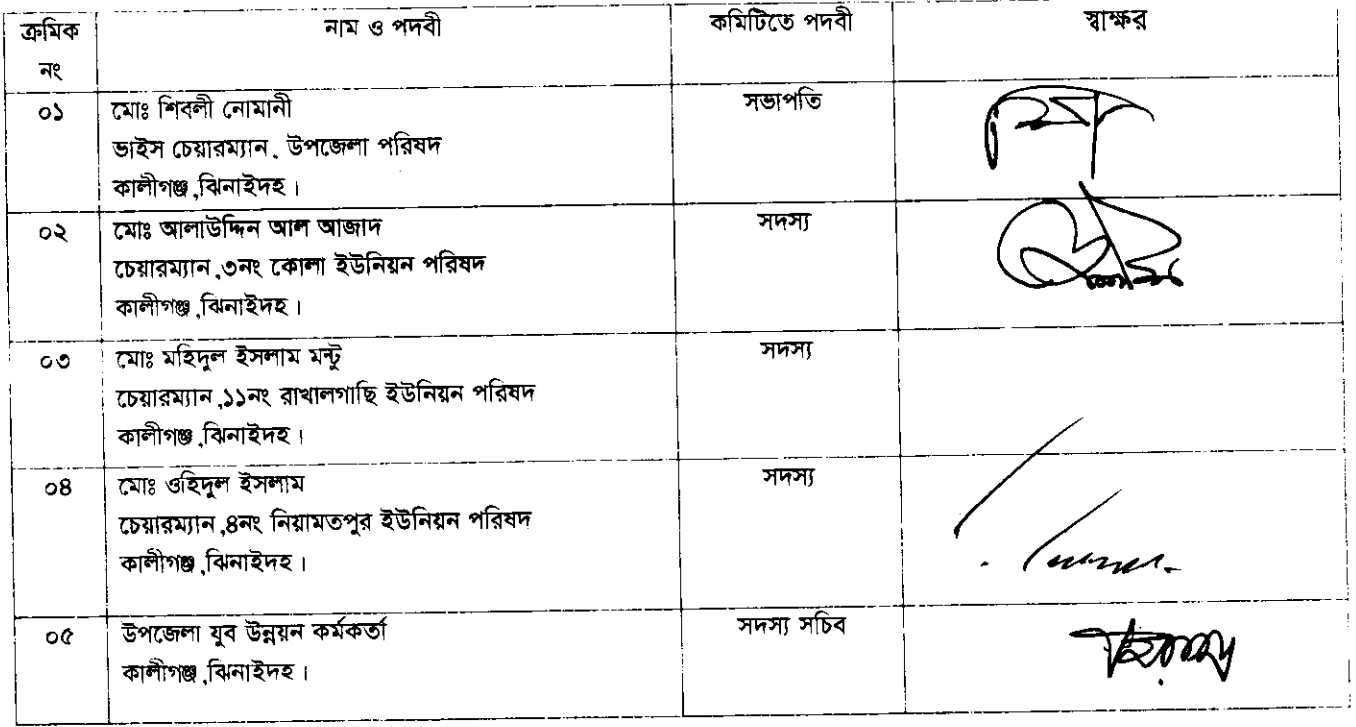 ক্রমিক নাম ও পদবী কমিটিতে পদবী স্বাক্ষর
নং
০১ মোঃ শিবলী নোমানী সভাপতি
ভাইস চেয়ারম্যান, উপজেলা পরিষদ
কালীগঞ্জ,ঝিনাইদহ।
০২ মোঃ আলাউদ্দিন আল আজাদ সদস্য
চেয়ারম্যান,৩নং কোলা ইউনিয়ন পরিষদ
কালীগঞ্জ,ঝিনাইদহ।
০৩ মোঃ মহিদুল ইসলাম মন্টু সদস্য
চেয়ারম্যান,১১নং রাখালগাছি ইউনিয়ন পরিষদ
কালীগঞ্জ,ঝিনাইদহ।
০৪ মোঃ ওহিদুল ইসলাম সদস্য
চেয়ারম্যান,৪নং নিয়ামতপুর ইউনিয়ন পরিষদ
কালীগঞ্জ,ঝিনাইদহ।
০৫ উপজেলা যুব উন্নয়ন কর্মকর্তা সদস্য সচিব
কালীগঞ্জ,ঝিনাইদহ।